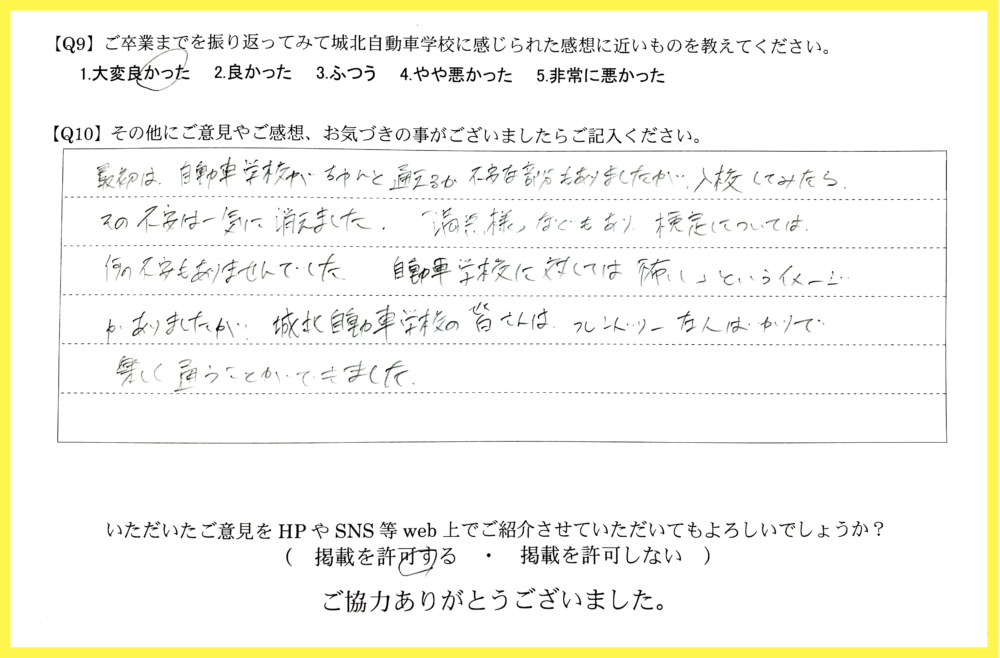 【Q9】ご卒業までを振り返ってみて城北自動車学校に感じられた感想に近いものを教えてください。
1.大変良かった 2.良かった 3.ふつう 4.やや悪かった 5.非常に悪かった
【Q10】その他にご意見やご感想、お気づきの事がございましたらご記入ください。
最初は、自動車学校がちゃんと通えるか不安な部分もありましたが、入校してみたら、
その不安は一気に消えました。「満点様」などもあり、検定については、
何の不安もありませんでした。自動車学校に対しては「怖い」というイメージ
がありましたが、城北自動車学校の皆さんは、フレンドリーな人ばかりで
楽しく通うことができました。
いただいたご意見をHPやSNS等web上でご紹介させていただいてもよろしいでしょうか？
（ 掲載を許可する ・ 掲載を許可しない ）
ご協力ありがとうございました。